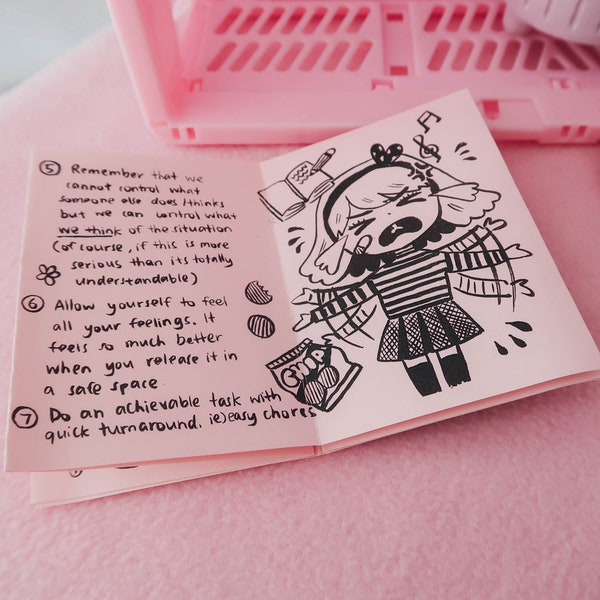 ⑤ Remember that we
cannot control what
someone else does/thinks
but we can control what
we think of the situation
(of course, if this is more
serious than its totally
understandable)
⑥ Allow yourself to feel
all your feelings. It
feels so much better
when you release it in
a safe space
⑦ Do an achievable task with
quick turnaround. ie) easy chores